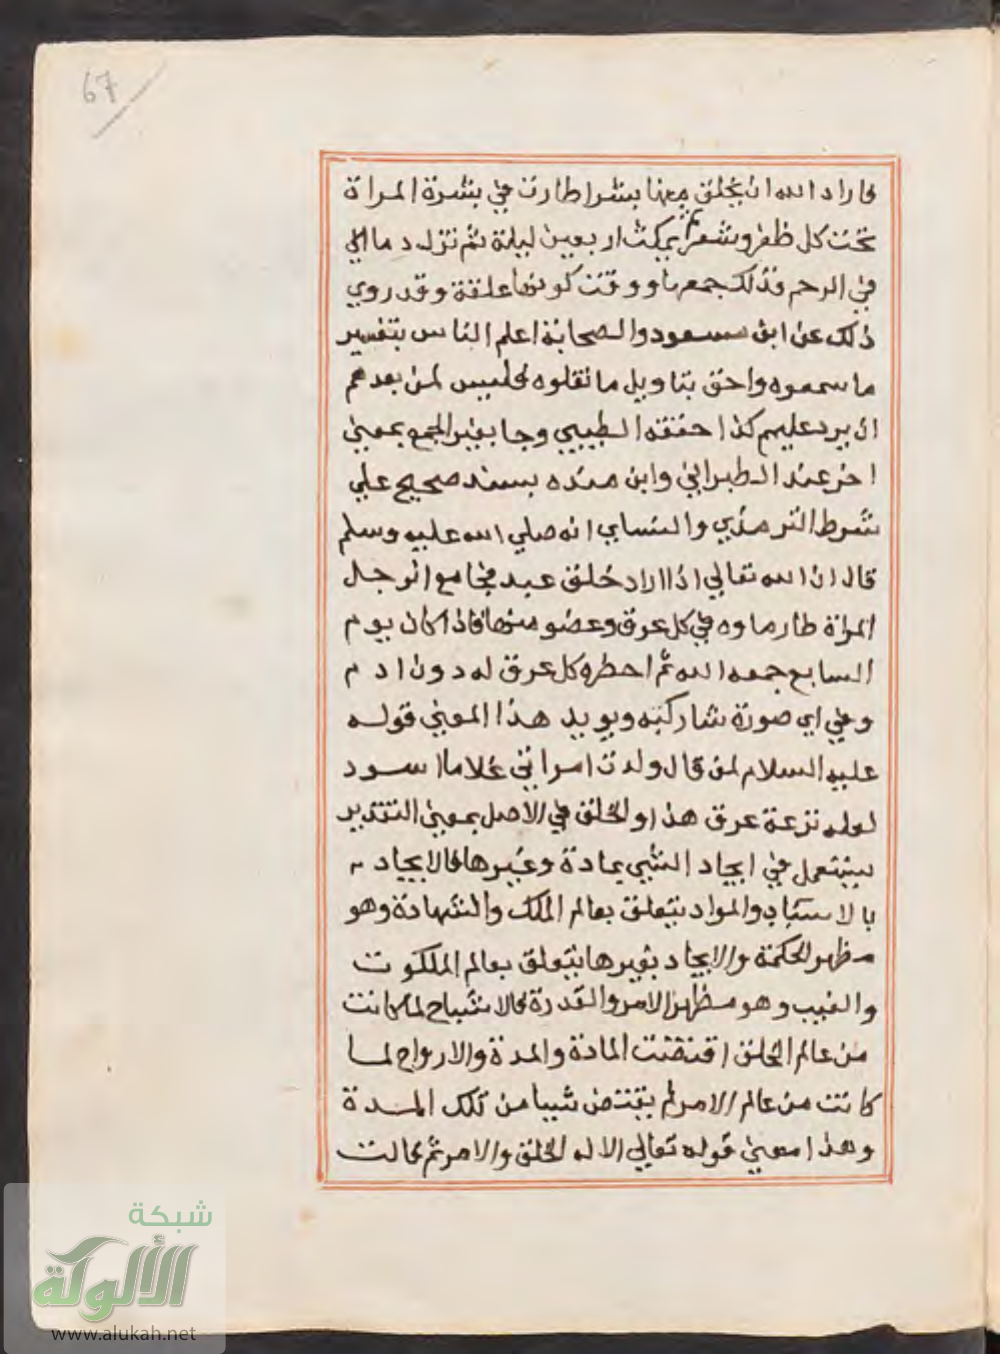 67
فاراد الله ان يخلق منها بشرا طارت في بشرة المراة
تحت كل ظفر وشعر ثم يمكث اربعين ليلة ثم تنزل دما
في الرحم فذلك جمعها ووقت كونها علقة وقد روي
ذلك عن ابن مسعود والصحابة اعلم الناس بتفسير
ما سمعوه واحق بتاويل ما نقلوه فليس لمن بعدهم
ان يرد عليهم كذا حققه الطيبي وجا بغير الجمع بمعني
اخر عند الطبراني وابن منده بسند صحيح علي
شرط الترمذي والنساي انه صلي الله عليه وسلم
قال ان الله تعالي اذا اراد خلق عبد فجامع الرجل
المراة طار ماوه في كل عرق وعضو منها فاذا كان يوم
السابع جمعه الله ثم احضره كل عرق له دون ادم
وفي اي صورة شا ركبه ويويد هذا المعني قوله
عليه السلام لمن قال ولدت امراتي غلاما اسود
لعله نزعة عرق هذا والخلق في الاصل بمعني التقدير
يستعمل في ايجاد الشي بمادة وغيرها فالايجاد
بالاسباب والمواد يتعلق بعالم الملك والشهادة وهو
مظهر الحكمة والايجاد بغيرها يتعلق بعالم الملكوت
والغيب وهو مظهر الامر والقدرة فالاشباح لما كانت
من عالم الخلق اقتضت المادة والمدة والارواح لما
كانت من عالم الامر لم يقتض شيا من تلك المدة
وهذا معني قوله تعالي الا له الخلق والامر ثم قالت
شبكة
الألوكة
www.alukah.net